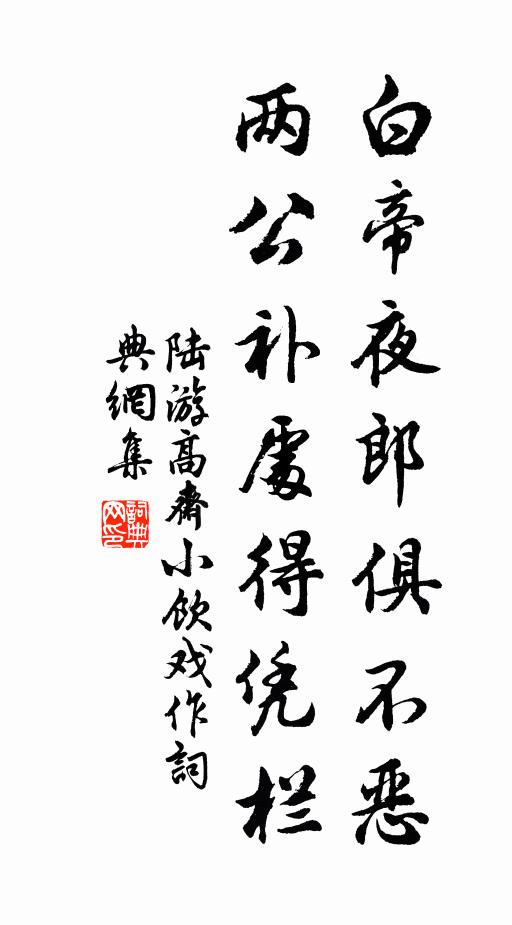 白帝夜郎俱不恶
两公补處得凭栏
陆游高齋小飲戏作詞
典網集
詞典
网印